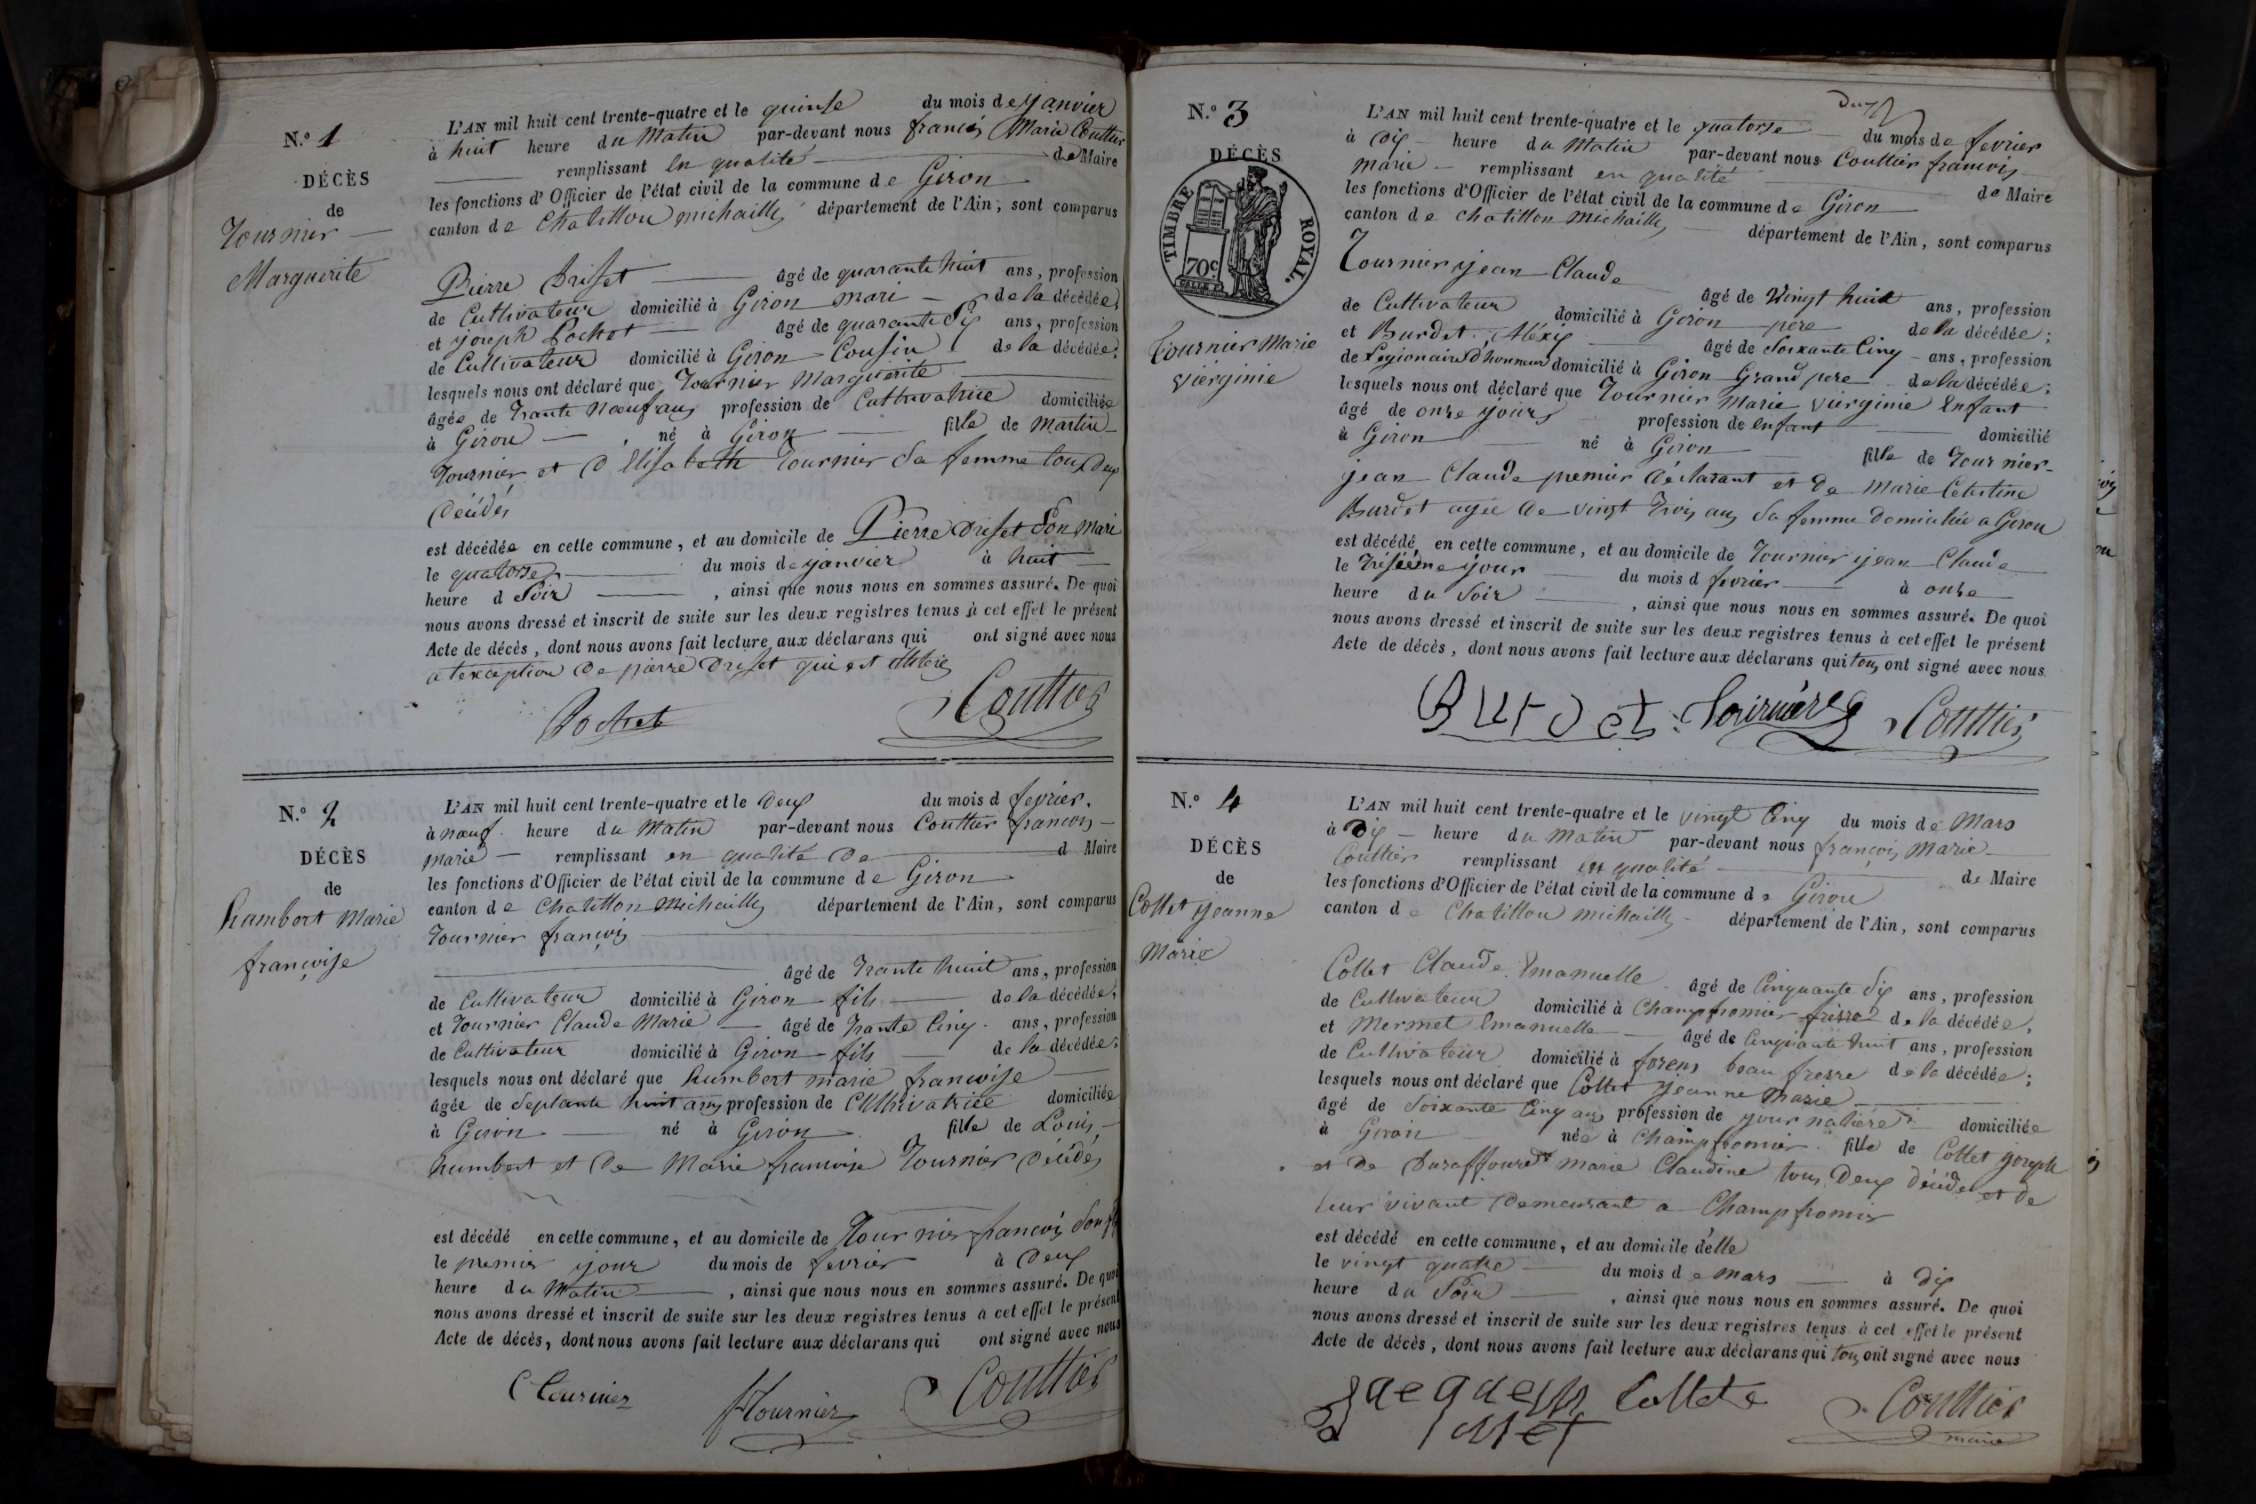 N.º 1
DÉCÈS
de
Tournier
Marguerite
L'AN mil huit cent trente-quatre et le quinse du mois de janvier
à huit heure du Matin par-devant nous francois Marie Couttier
remplissant en qualité de Maire
les fonctions d'Officier de l'état civil de la commune de Giron
canton de Chatillon michaille département de l'Ain, sont comparus
Pierre Drisset âgé de quarante huit ans, profession
de Cultivateur domicilié à Giron mari de la décédée
et joseph Pochet âgé de quarante dix ans, profession
de Cultivateur domicilié à Giron Cousin de la décédée;
lesquels nous ont déclaré que Tournier Marguerite
âgée de Trante Noeuf ans profession de Cultivatrice domiciliée
à Giron, né à Giron fille de Martin
Tournier et d'Elisabeth Tournier sa femme tous deux
décédés
est décédée en cette commune, et au domicile de Pierre Drisset son mari
le quatorse du mois de janvier à huit
heure d soir, ainsi que nous nous en sommes assuré. De quoi
nous avons dressé et inscrit de suite sur les deux registres tenus à cet effet le présent
Acte de décès, dont nous avons fait lecture aux déclarans qui ont signé avec nous
a lexception de pierre drisset qui est illiteré
Pochet Couttier
N.º 2
DÉCÈS
de
humbert Marie
françoise
L'AN mil huit cent trente-quatre et le deux du mois d fevrier.
à nœuf heure du Matin par-devant nous Couttier francois
marie remplissant en qualité de d Maire
les fonctions d'Officier de l'état civil de la commune de Giron
canton de Chatillon Michaille département de l'Ain, sont comparus
Tournier françois
âgé de Trante huit ans, profession
de Cultivateur domicilié à Giron fils de la décédée,
et Tournier Claude Marie âgé de Trante Cinq ans, profession
de Cultivateur domicilié à Giron fils de la décédée;
lesquels nous ont déclaré que humbert marie francoise
âgée de septante huit ans profession de Cultivatrice domiciliée
à Giron né à Giron fille de Louis
humbert et de Marie francoise Tournier décédés
est décédé en cette commune, et au domicile de Tournier francois son fils
le premier jour du mois de fevrier à deux
heure du Matin, ainsi que nous nous en sommes assuré. De quoi
nous avons dressé et inscrit de suite sur les deux registres tenus à cet effet le présent
Acte de décès, dont nous avons fait lecture aux déclarans qui ont signé avec nous
C Tournier f Tournier Couttier
N.º 3
DÉCÈS
TIMBRE ROYAL.
70 c.
Tournier Marie
vierginie
L'AN mil huit cent trente-quatre et le quatorse du mois de fevrier
à dix heure du Matin par-devant nous Couttier francois
marie remplissant en qualité de Maire
les fonctions d'Officier de l'état civil de la commune de Giron
canton de chatillon Michaille département de l'Ain, sont comparus
Tournier jean Claude
âgé de vingt huit ans, profession
de Cultivateur domicilié à Giron pere de la décédée;
et Burdet Aléxis âgé de soixante Cinq ans, profession
de Legionaire d'honneur domicilié à Giron Grand pere de la décédée;
lesquels nous ont déclaré que Tournier Marie vierginie Enfant
âgé de onze jours profession de enfant domicilié
à Giron né à Giron fille de Tournier
jean Claude premier déclarant et de Marie Celestine
Burdet agée de vingt Trois ans sa femme domiciliée a Giron
est décédé en cette commune, et au domicile de Tournier jean Claude
le Tréséme jour du mois d fevrier à onze
heure du soir, ainsi que nous nous en sommes assuré. De quoi
nous avons dressé et inscrit de suite sur les deux registres tenus à cet effet le présent
Acte de décès, dont nous avons fait lecture aux déclarans qui tous ont signé avec nous.
Burdet Couttier
N.º 4
DÉCÈS
de
Collet jeanne
Marie
L'AN mil huit cent trente-quatre et le vingt Cinq du mois de Mars
à dix heure du Matin par-devant nous françois Marie
Couttier remplissant en qualité de Maire
les fonctions d'Officier de l'état civil de la commune de Giron
canton de Chatillon michaille département de l'Ain, sont comparus
Collet Claude Emanuelle âgé de Cinquante dix ans, profession
de Cultivateur domicilié à Champfromier frere de la décédée.
et Mermet Emanuelle âgé de Cinquante huit ans, profession
de Cultivateur domicilié à forens beau frerre de la décédée;
lesquels nous ont déclaré que Collet jeanne Marie
âgé de soixante Cinq ans profession de journaliere domiciliée
à Giron née à Champfromier fille de Collet joseph
et de Duraffourd marie Claudine tous deux décédés et de
leur vivant demeurant a Champfromier
est décédé en cette commune, et au domicile d'elle
le vingt quatre du mois de mars à dix
heure du soir, ainsi que nous nous en sommes assuré. De quoi
nous avons dressé et inscrit de suite sur les deux registres tenus à cet effet le présent
Acte de décès, dont nous avons fait lecture aux déclarans qui tous ont signé avec nous
Couttier
maire